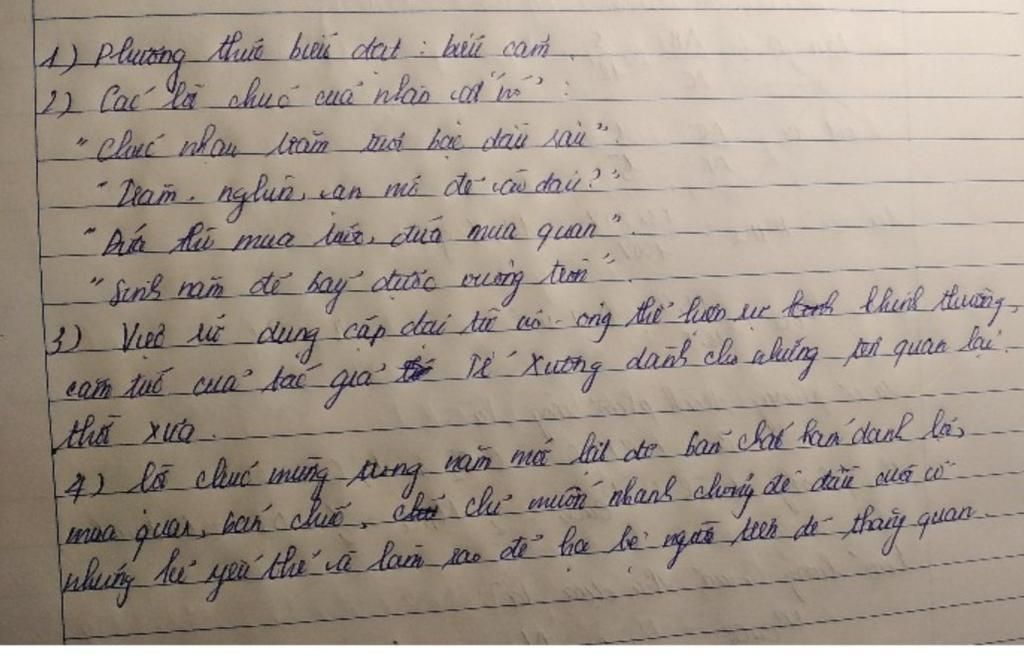 1) Phương thức biểu đạt : biểu cảm.
2) Các lời chúc của nhân vật "nó" :
"Chúc nhau trăm tuổi bạc đầu râu".
"Trăm, nghìn, vạn mớ để vào đâu?".
"Đứa thì mua tước, đứa mua quan".
"Sinh năm đẻ bảy được vuông tròn".
3) Việc sử dụng cặp đại từ nó - ông thể hiện sự khinh thường,
căm tức của tác giả Tế Xương dành cho những tên quan lại
thời xưa.
4) lời chúc mừng năm mới lật đổ bản chất ham danh lợi,
mua quan, bán chức, chỉ muốn nhanh chóng đè đầu cưỡi cổ
những kẻ yếu thế và làm sao để bè người trên để thăng quan.